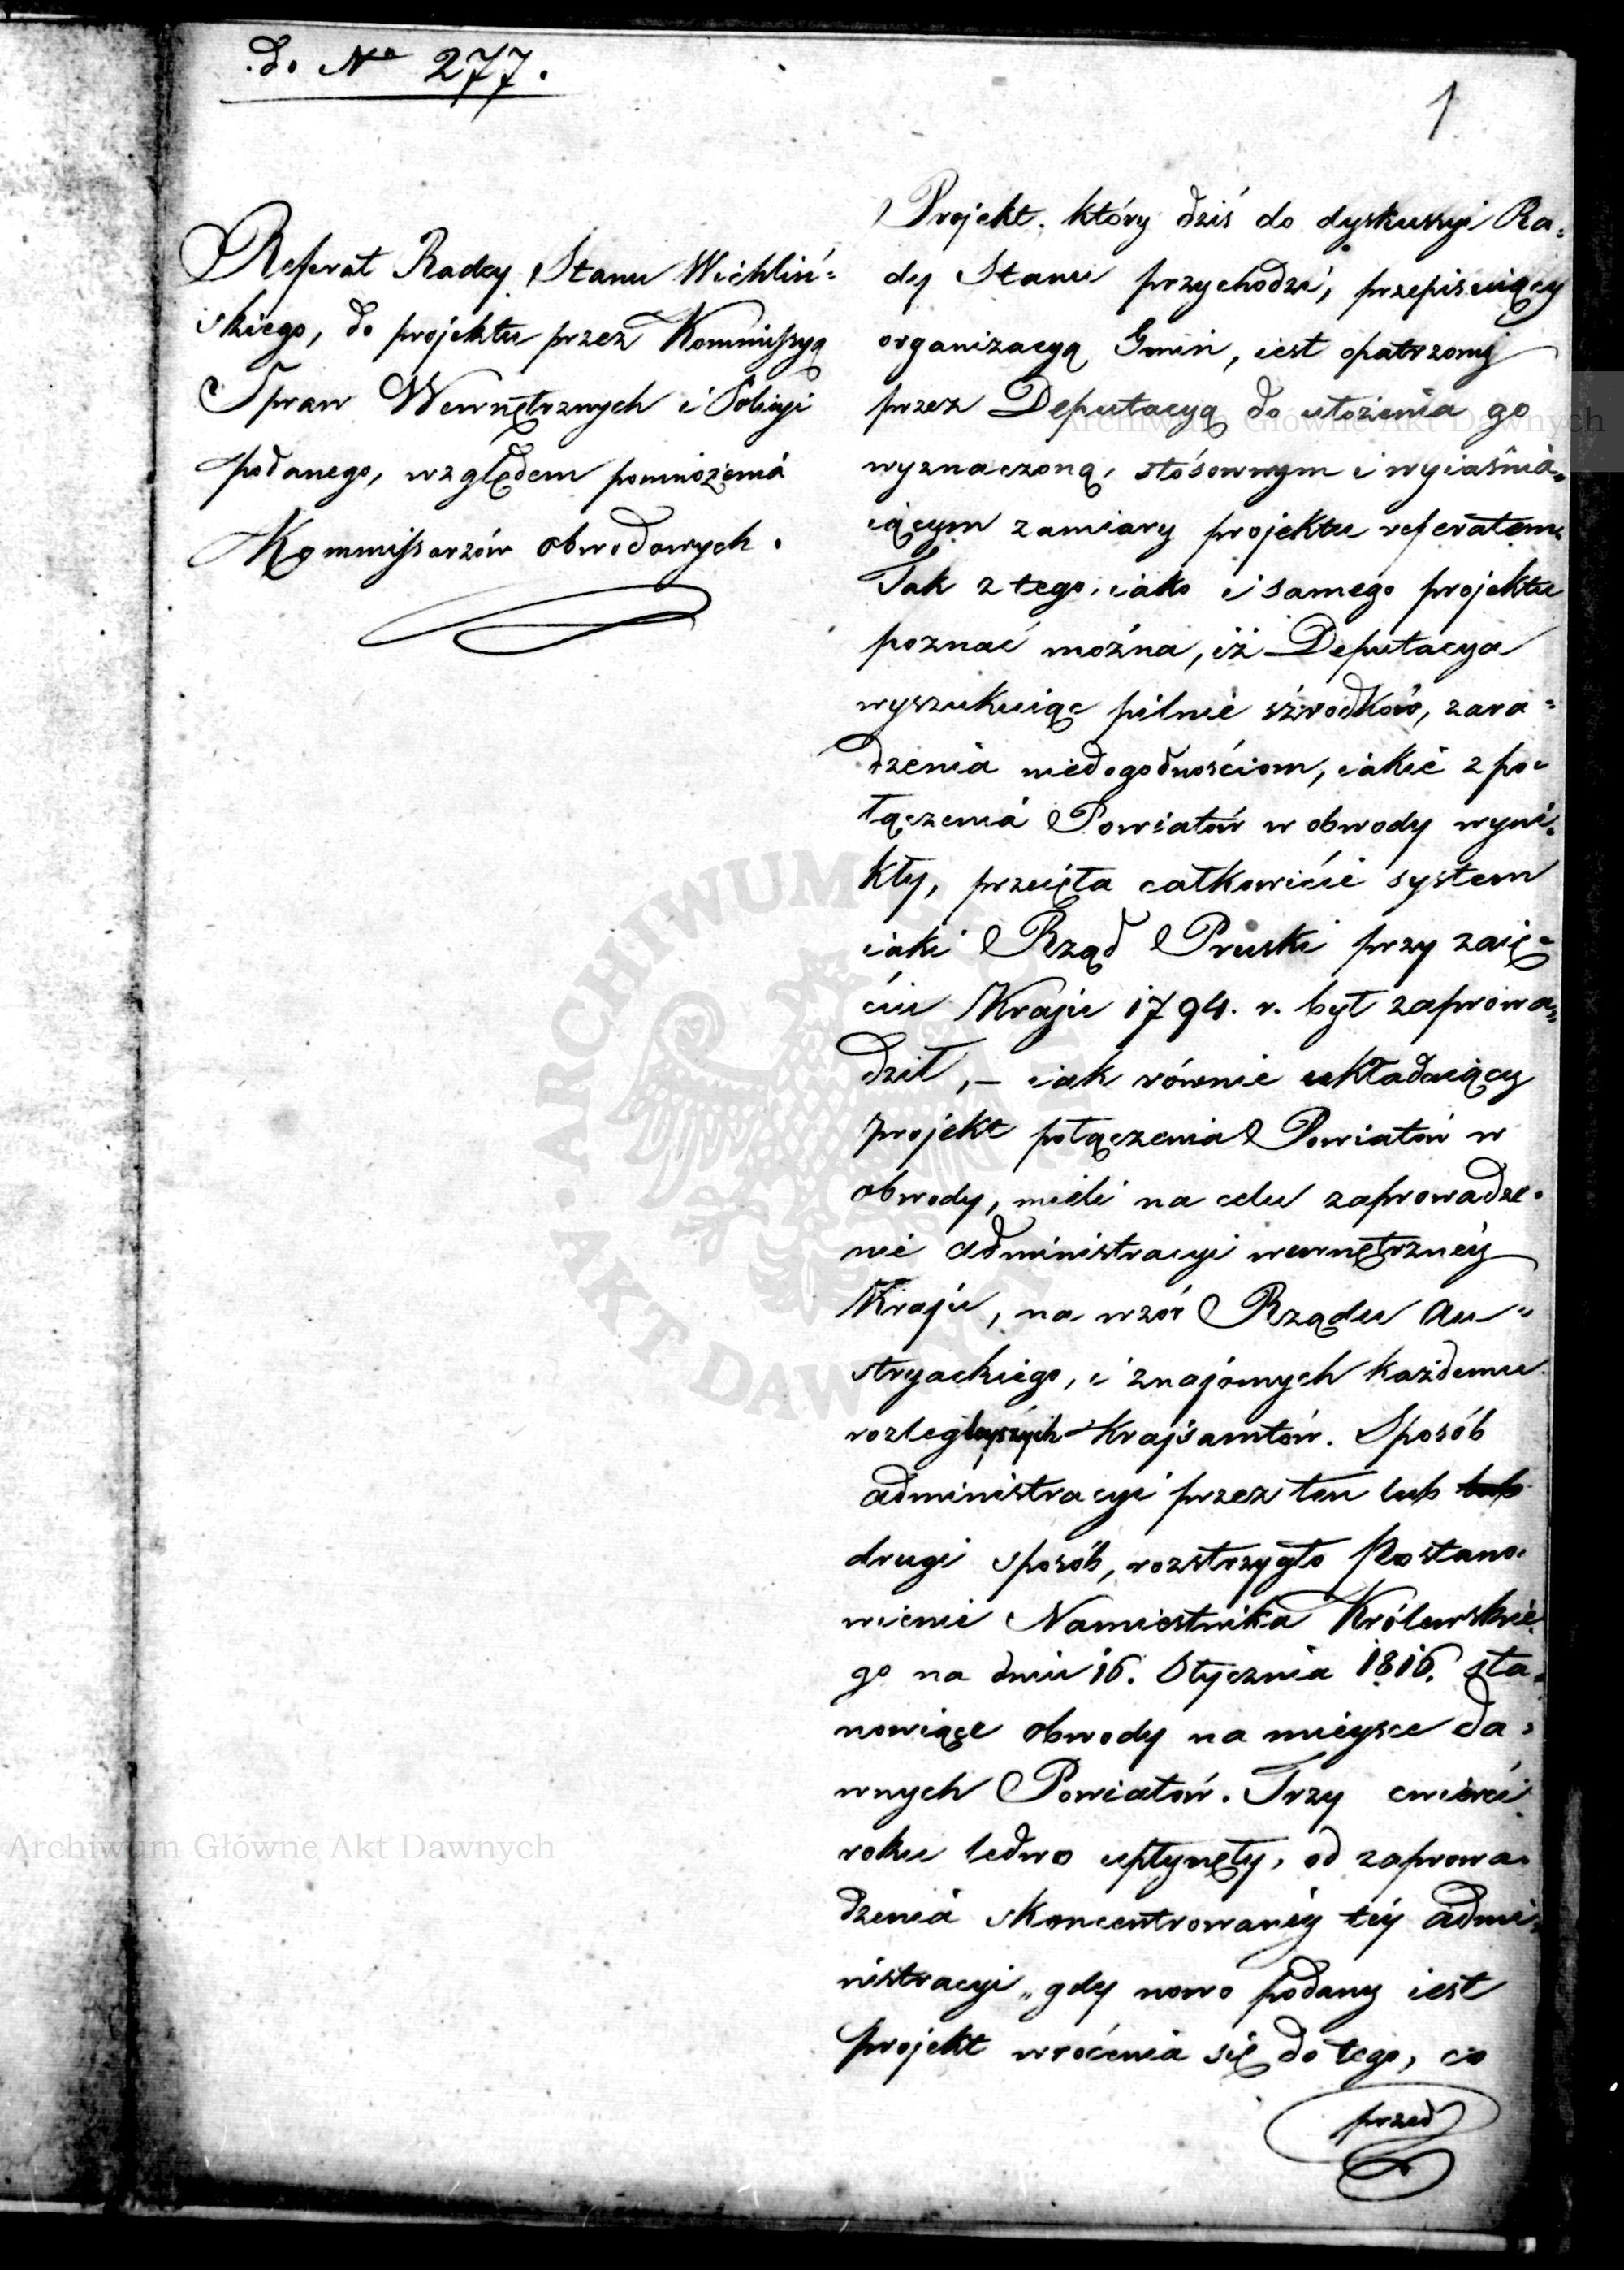 do No 277.
1
Referat Radcy Stanu Wichliń=
skiego, do projektu przez Kommissyą
Spraw Wewnętrznych i Policyi
podanego, względem pomnożenia
Kommissarzów obwodowych.
Projekt, który dziś do dyskussyi Ra=
dy Stanu przychodzi, przepisuiący
organizacyą Gmin, iest opatrzony
przez Deputacyą do ułożenia go
wyznaczoną, stósownym i wyiaśnia=
iącym zamiary projektu referatem.
Tak z tego, iako i samego projektu
poznać można, iż Deputacya
wyszukuiąc pilnie śzrodków, zara=
dzenia niedogodnościom, iakie z po=
łączenia Powiatów w obwody wyni=
kły, przeięła całkowicie system
iaki Rząd Pruski przy zaię=
ciu Kraju 1794. r. był zaprowa=
dził, – iak równie układaiący
projekt połączenia Powiatów w
obwody, mieli na celu zaprowadze=
nie administracyi wewnętrznéy
Kraju, na wzór Rządu Au=
stryackiego, i znajomych każdemu
rozległyszych Krajsamtów. Sposób
administracyi przez ten lub lub
drugi sposób, rozstrzygło Postano=
wienie Namiestnika Królewskie=
go na dniu 16. Stycznia 1816. sta=
nowiące obwody na mieysce da=
wnych Powiatów. Trzy cwierci
roku ledwo upłynęły, od zaprowa=
dzenia skoncentrowanéy téy admi=
nistracyi, gdy nowo podany iest
projekt wrócenia się do tego, co
przed
Archiwum Główne Akt Dawnych
Archiwum Główne Akt Dawnych
ARCHIWUM GŁÓWNE · AKT DAWNYCH ·